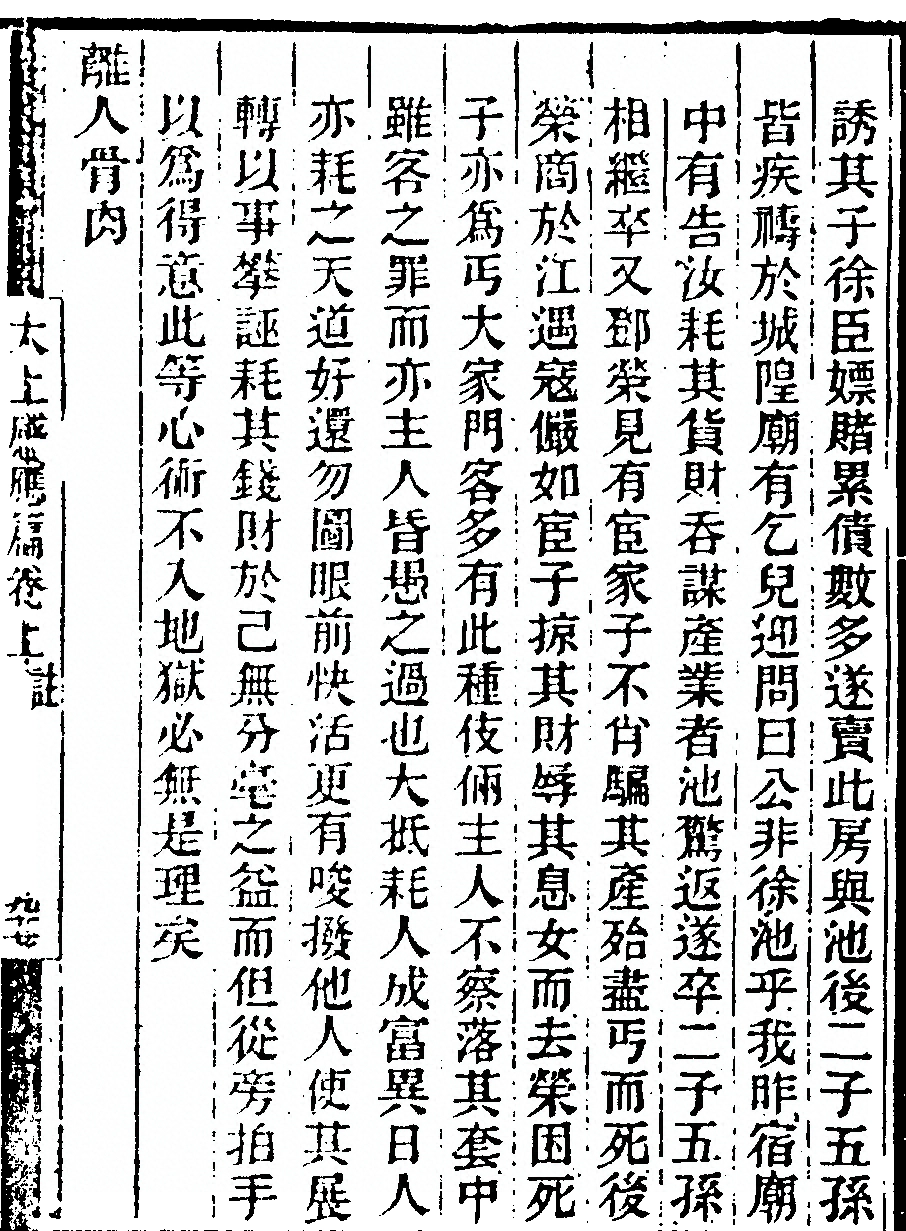 誘其子徐臣嫖賭累債數多遂賣此房與池後二子五孫
皆疾禱於城隍廟有乞兒迎問曰公非徐池乎我昨宿廟
中有告汝耗其貨財吞謀產業者池驚返遂卒二子五孫
相繼卒又鄧榮見有宦家子不肖騙其產殆盡丐而死後
榮商於江遇寇儼如宦子掠其財辱其息女而去榮困死
子亦為丐大家門客多有此種伎倆主人不察落其套中
雖客之罪而亦主人皆愚之過也大抵耗人成富異日人
亦耗之天道好還勿圖眼前快活更有唆撥他人使其展
轉以事攀誣耗其錢財於己無分毫之益而但從旁拍手
以爲得意此等心術不入地獄必無是理矣
離人骨肉
太上感應篇卷上 註